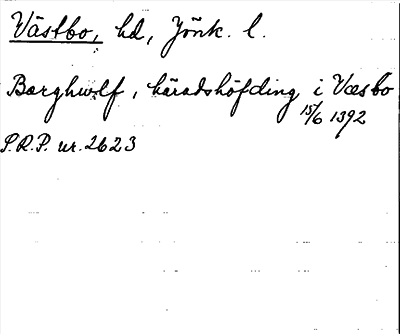 Västbo, hd, Jönk. l.
Barghwlf, häradshöfding i Væsbo
15/6 1392
S.R.P. nr. 2623